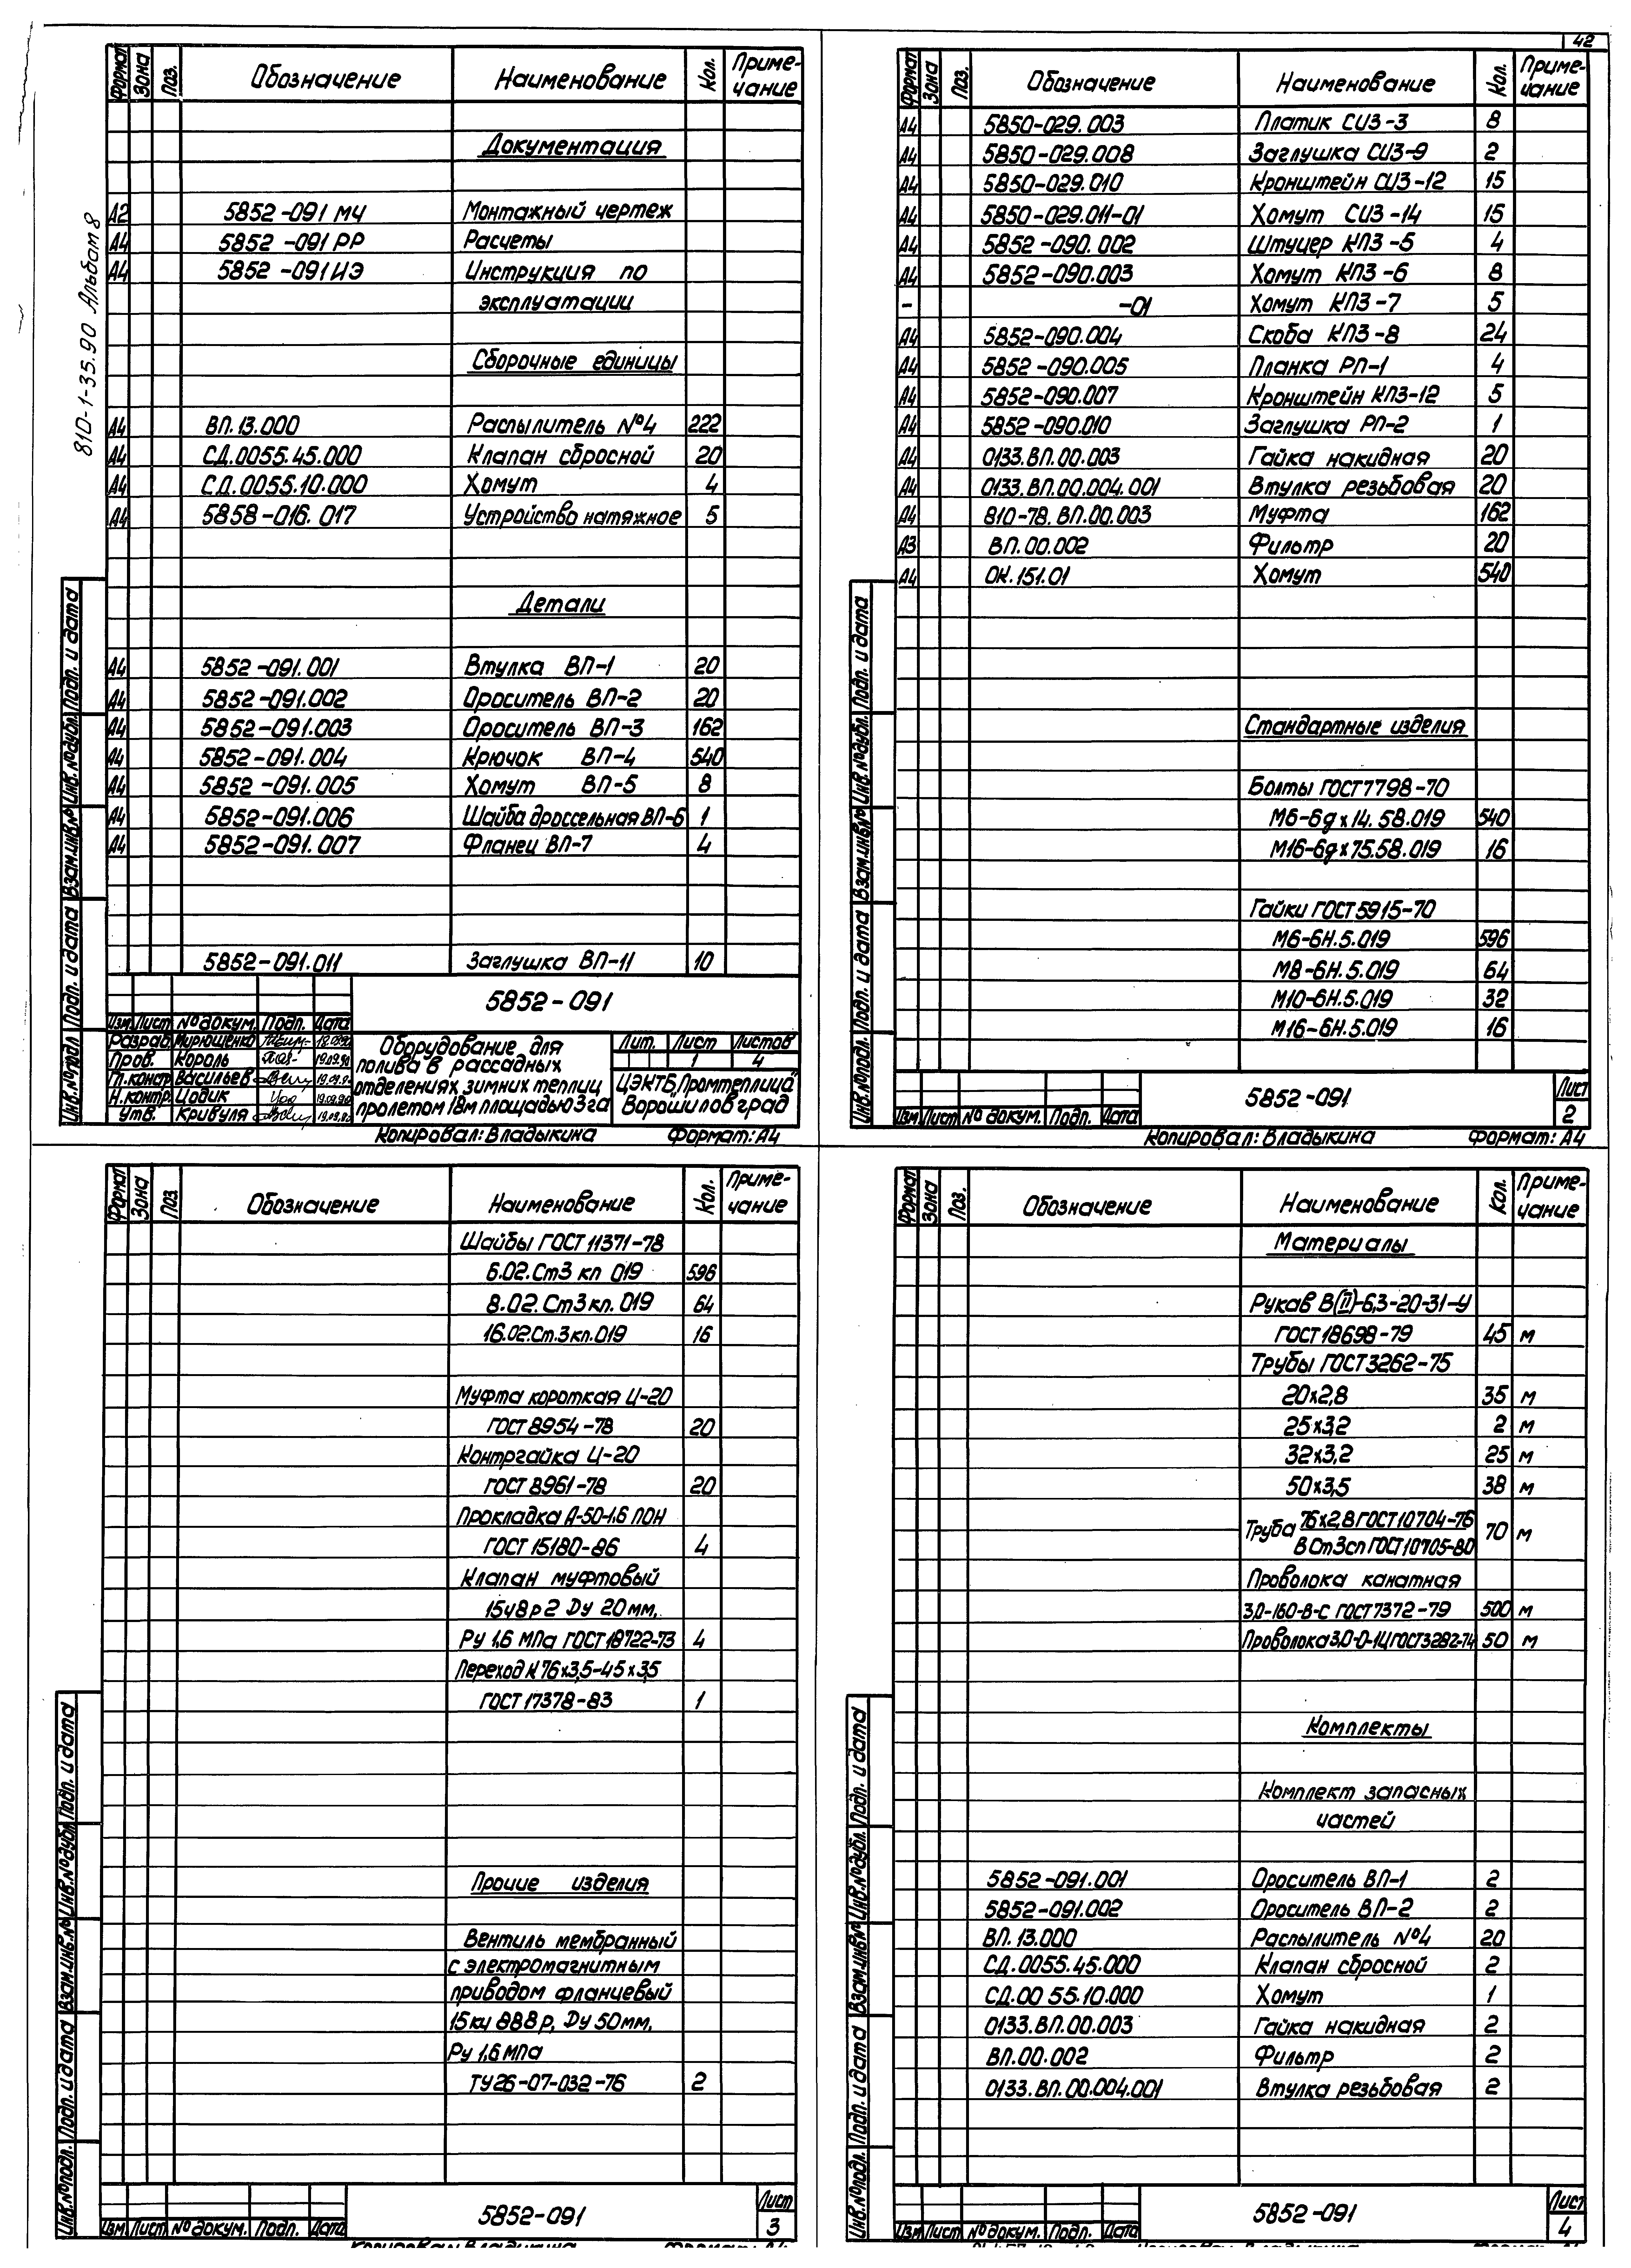 42
810-1-35.90 Альбом 8
Формат Зона Поз. Обозначение Наименование Кол. Приме-
чание
Документация
А2 5852-091 МЧ Монтажный чертеж
А4 5852-091 РР Расчеты
А4 5852-091 ИЭ Инструкция по
эксплуатации
Сборочные единицы
А4 ВП.13.000 Распылитель №4 222
А4 СД.0055.45.000 Клапан сбросной 20
А4 СД.0055.10.000 Хомут 4
А4 5858-016.017 Устройство натяжное 5
Детали
А4 5852-091.001 Втулка ВП-1 20
А4 5852-091.002 Ороситель ВП-2 20
А4 5852-091.003 Ороситель ВП-3 162
А4 5852-091.004 Крючок ВП-4 540
А4 5852-091.005 Хомут ВП-5 8
А4 5852-091.006 Шайба дроссельная ВП-6 1
А4 5852-091.007 Фланец ВП-7 4
5852-091.011 Заглушка ВП-11 10
Инв.№подл. Подп. и дата Взам.инв.№ Инв.№дубл. Подп. и дата
5852-091
Изм Лист № докум. Подп. Дата
Разраб. Мирюшенко 18.09.90
Пров. Король 19.09.90
Гл.констр. Васильев 19.09.90
Н.контр. Цодик 19.09.90
Утв. Кривуля 19.09.90
Оборудование для
полива в рассадных
отделениях зимних теплиц
пролетом 18м площадью 3га
Лит. Лист Листов
1 4
ЦЭКТБ„Промтеплица"
Ворошиловград
Копировал: Владыкина Формат: А4
Формат Зона Поз. Обозначение Наименование Кол. Приме-
чание
А4 5850-029.003 Платик СИЗ-3 8
А4 5850-029.008 Заглушка СИЗ-9 2
А4 5850-029.010 Кронштейн СИЗ-12 15
А4 5850-029.011-01 Хомут СИЗ-14 15
А4 5852-090.002 Штуцер КПЗ-5 4
А4 5852-090.003 Хомут КПЗ-6 8
- -01 Хомут КПЗ-7 5
А4 5852-090.004 Скоба КПЗ-8 24
А4 5852-090.005 Планка РП-1 4
А4 5852-090.007 Кронштейн КПЗ-12 5
А4 5852-090.010 Заглушка РП-2 1
А4 0133.ВП.00.003 Гайка накидная 20
А4 0133.ВП.00.004.001 Втулка резьбовая 20
А4 810-78.ВП.00.003 Муфта 162
А3 ВП.00.002 Фильтр 20
А4 ОК.151.01 Хомут 540
Стандартные изделия
Болты ГОСТ 7798-70
М6-6gх14.58.019 540
М16-6gх75.58.019 16
Гайки ГОСТ 5915-70
М6-6Н.5.019 596
М8-6Н.5.019 64
М10-6Н.5.019 32
М16-6Н.5.019 16
Инв.№подл. Подп. и дата Взам.инв.№ Инв.№дубл. Подп. и дата
Изм Лист № докум. Подп. Дата
5852-091
Лист
2
Копировал: Владыкина Формат: А4
Формат Зона Поз. Обозначение Наименование Кол. Приме-
чание
Шайбы ГОСТ 11371-78
6.02.Ст3 кп 019 596
8.02.Ст3кп.019 64
16.02.Ст.3кп.019 16
Муфта короткая Ц-20
ГОСТ 8954-78 20
Контргайка Ц-20
ГОСТ 8961-78 20
Прокладка А-50-1.6 ПОН
ГОСТ 15180-86 4
Клапан муфтовый
15ч8р2 Ду 20 мм,
Ру 1,6 МПа ГОСТ 18722-73 4
Переход К 76х3,5-45х3,5
ГОСТ 17378-83 1
Прочие изделия
Вентиль мембранный
с электромагнитным
приводом фланцевый
15кч 888р, Ду 50мм,
Ру 1,6 МПа
ТУ26-07-032-76 2
Инв.№подл. Подп. и дата Взам.инв.№ Инв.№дубл. Подп. и дата
Изм Лист № докум. Подп. Дата
5852-091
Лист
3
Копировал: Владыкина Формат: А4
Формат Зона Поз. Обозначение Наименование Кол. Приме-
чание
Материалы
Рукав В(II)-6,3-20-31-У
ГОСТ 18698-79 45 м
Трубы ГОСТ 3262-75
20х2,8 35 м
25х3,2 2 м
32х3,2 25 м
50х3,5 38 м
Труба 76х2,8 ГОСТ 10704-76
В Ст3сп ГОСТ 10705-80 70 м
Проволока канатная
3,0-160-В-С ГОСТ 7372-79 500 м
Проволока 3,0-О-1Ц ГОСТ 3282-74 50 м
Комплекты
Комплект запасных
частей
5852-091.001 Ороситель ВП-1 2
5852-091.002 Ороситель ВП-2 2
ВП.13.000 Распылитель №4 20
СД.0055.45.000 Клапан сбросной 2
СД.0055.10.000 Хомут 1
0133.ВП.00.003 Гайка накидная 2
ВП.00.002 Фильтр 2
0133.ВП.00.004.001 Втулка резьбовая 2
Инв.№подл. Подп. и дата Взам.инв.№ Инв.№дубл. Подп. и дата
Изм Лист № докум. Подп. Дата
5852-091
Лист
4